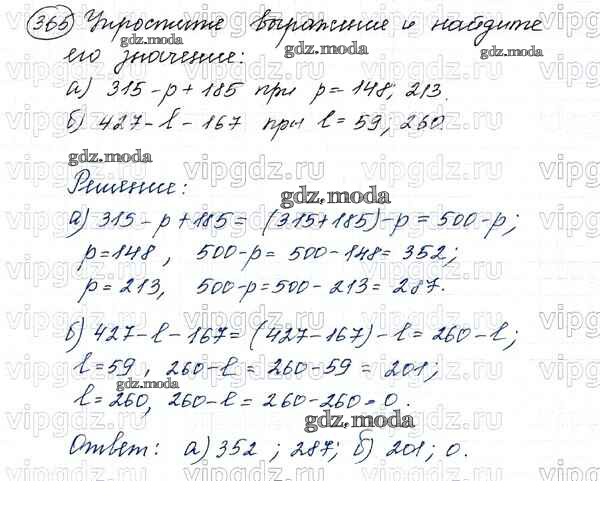 365 Упростите выражение и найдите
его значение:
а) 315 - p + 185 при p = 148; 213.
б) 427 - l - 167 при l = 59, 260.
Решение:
а) 315 - p + 185 = (315 + 185) - p = 500 - p;
p = 148, 500 - p = 500 - 148 = 352;
p = 213, 500 - p = 500 - 213 = 287.
б) 427 - l - 167 = (427 - 167) - l = 260 - l;
l = 59, 260 - l = 260 - 59 = 201;
l = 260, 260 - l = 260 - 260 = 0.
Ответ: а) 352; 287; б) 201; 0.
gdz.moda
vipgdz.ru